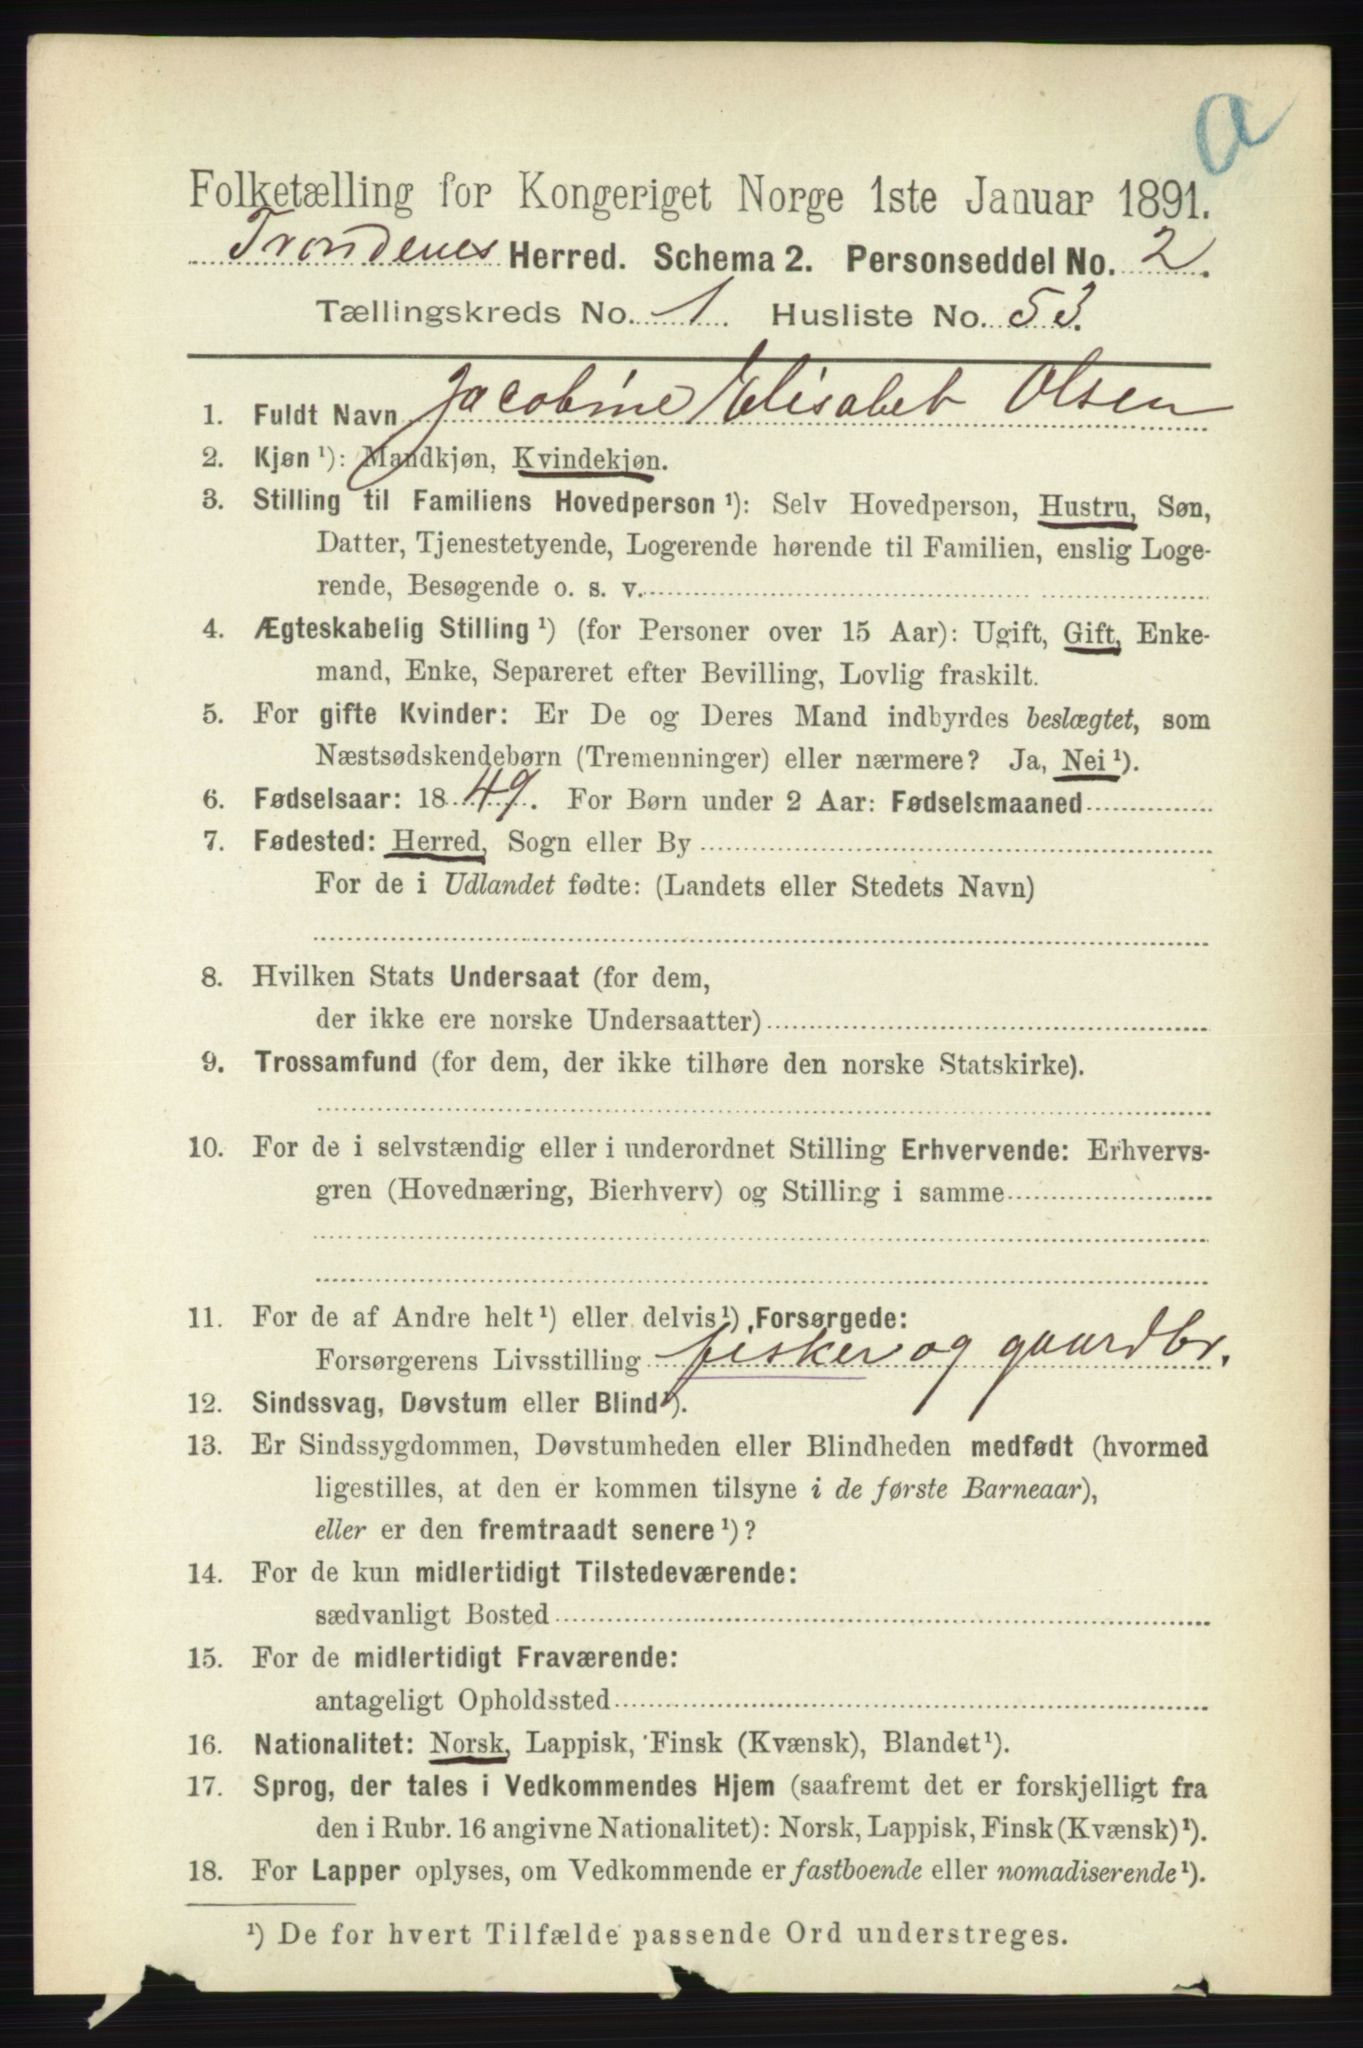 a
Folketælling for Kongeriget Norge 1ste Januar 1891.
Trondenes Herred. Schema 2. Personseddel No. 2.
Tællingskreds No. 1 Husliste No. 53.
1. Fuldt Navn Jacobine Elisabet Olsen
2. Kjøn ¹): Mandkjøn, Kvindekjøn.
3. Stilling til Familiens Hovedperson ¹): Selv Hovedperson, Hustru, Søn,
Datter, Tjenestetyende, Logerende hørende til Familien, enslig Loge-
rende, Besøgende o. s. v.
4. Ægteskabelig Stilling ¹) (for Personer over 15 Aar): Ugift, Gift, Enke-
mand, Enke, Separeret efter Bevilling, Lovlig fraskilt.
5. For gifte Kvinder: Er De og Deres Mand indbyrdes beslægtet, som
Næstsødskendebørn (Tremenninger) eller nærmere? Ja, Nei ¹).
6. Fødselsaar: 1849. For Børn under 2 Aar: Fødselsmaaned
7. Fødested: Herred, Sogn eller By
For de i Udlandet fødte: (Landets eller Stedets Navn)
8. Hvilken Stats Undersaat (for dem,
der ikke ere norske Undersaatter)
9. Trossamfund (for dem, der ikke tilhøre den norske Statskirke).
10. For de i selvstændig eller i underordnet Stilling Erhvervende: Erhvervs-
gren (Hovednæring, Bierhverv) og Stilling i samme
11. For de af Andre helt ¹) eller delvis ¹) Forsørgede:
Forsørgerens Livsstilling fisker og gaardbr.
12. Sindssvag, Døvstum eller Blind ¹).
13. Er Sindssygdommen, Døvstumheden eller Blindheden medfødt (hvormed
ligestilles, at den er kommen tilsyne i de første Barneaar),
eller er den fremtraadt senere ¹)?
14. For de kun midlertidigt Tilstedeværende:
sædvanligt Bosted
15. For de midlertidigt Fraværende:
antageligt Opholdssted
16. Nationalitet: Norsk, Lappisk, Finsk (Kvænsk), Blandet ¹).
17. Sprog, der tales i Vedkommendes Hjem (saafremt det er forskjelligt fra
den i Rubr. 16 angivne Nationalitet): Norsk, Lappisk, Finsk (Kvænsk) ¹).
18. For Lapper oplyses, om Vedkommende er fastboende eller nomadiserende ¹).
¹) De for hvert Tilfælde passende Ord understreges.